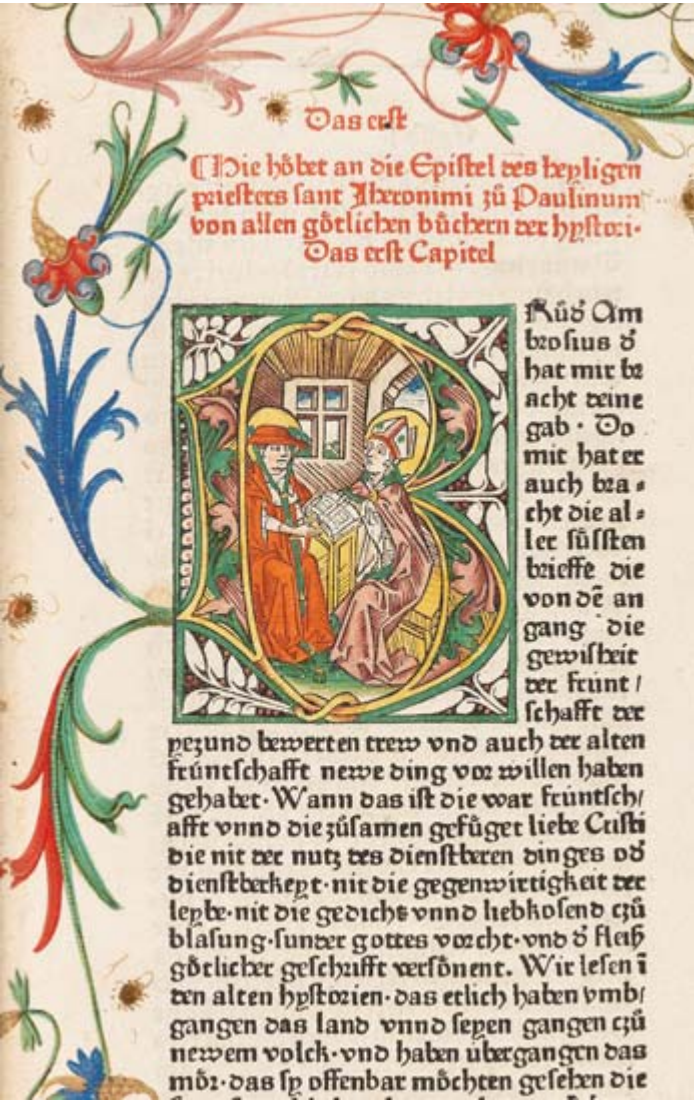 Das erst
¶ Hie hõbet an die Epistel des heyligen
priesters sant Jheronimi zů Paulinum
von allen gõtlichen bůchern der hystori·
Das erst Capitel
B
Růď Am
brosius ď
hat mir br
acht deine
gab · Do
mit hat er
auch bra⸗
cht die al⸗
ler sůssten
brieffe die
von dē an
gang die
gewisheit
der frúnt /
schafft der
yezund bewerten trew vnd auch der alten
frúntschafft newe ding vor willen haben
gehabet· Wann das ist die war frúntsch/
afft vnnd die zůsamen gefůget liebe Cristi
die nit der nutz des dienstberen dinges oď
dienstberkeyt·nit die gegenwirtigkeit der
leybe·nit die gedicht vnnd liebkosend czů
blasung·sunder gottes vorcht·vnd ď fleiß
gõtlicher geschrifft versõnent. Wir lesen ī
den alten hystorien·das etlich haben vmb/
gangen das land vnnd seyen gangen czů
newem volck·vnd haben úbergangen das
mõr·das sy offenbar mõchten gesehen die